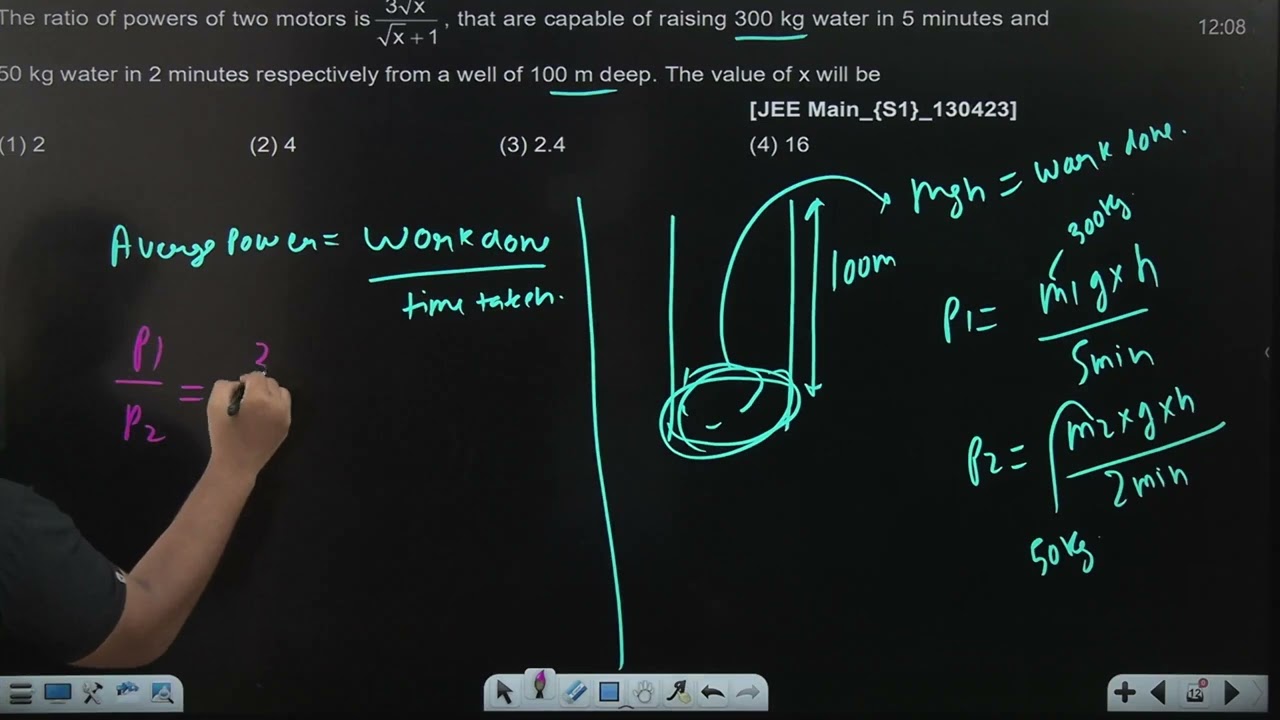 The ratio of powers of two motors is 3√x / √x + 1, that are capable of raising 300 kg water in 5 minutes and
50 kg water in 2 minutes respectively from a well of 100 m deep. The value of x will be
[JEE Main_{S1}_130423]
(1) 2 (2) 4 (3) 2.4 (4) 16
12:08
Average Power = Work done
time taken.
P1
P2
=
3
100m
mgh = work done.
300kg
P1 = m1 g x h
5min
P2 = m2 x g x h
2min
50kg
12